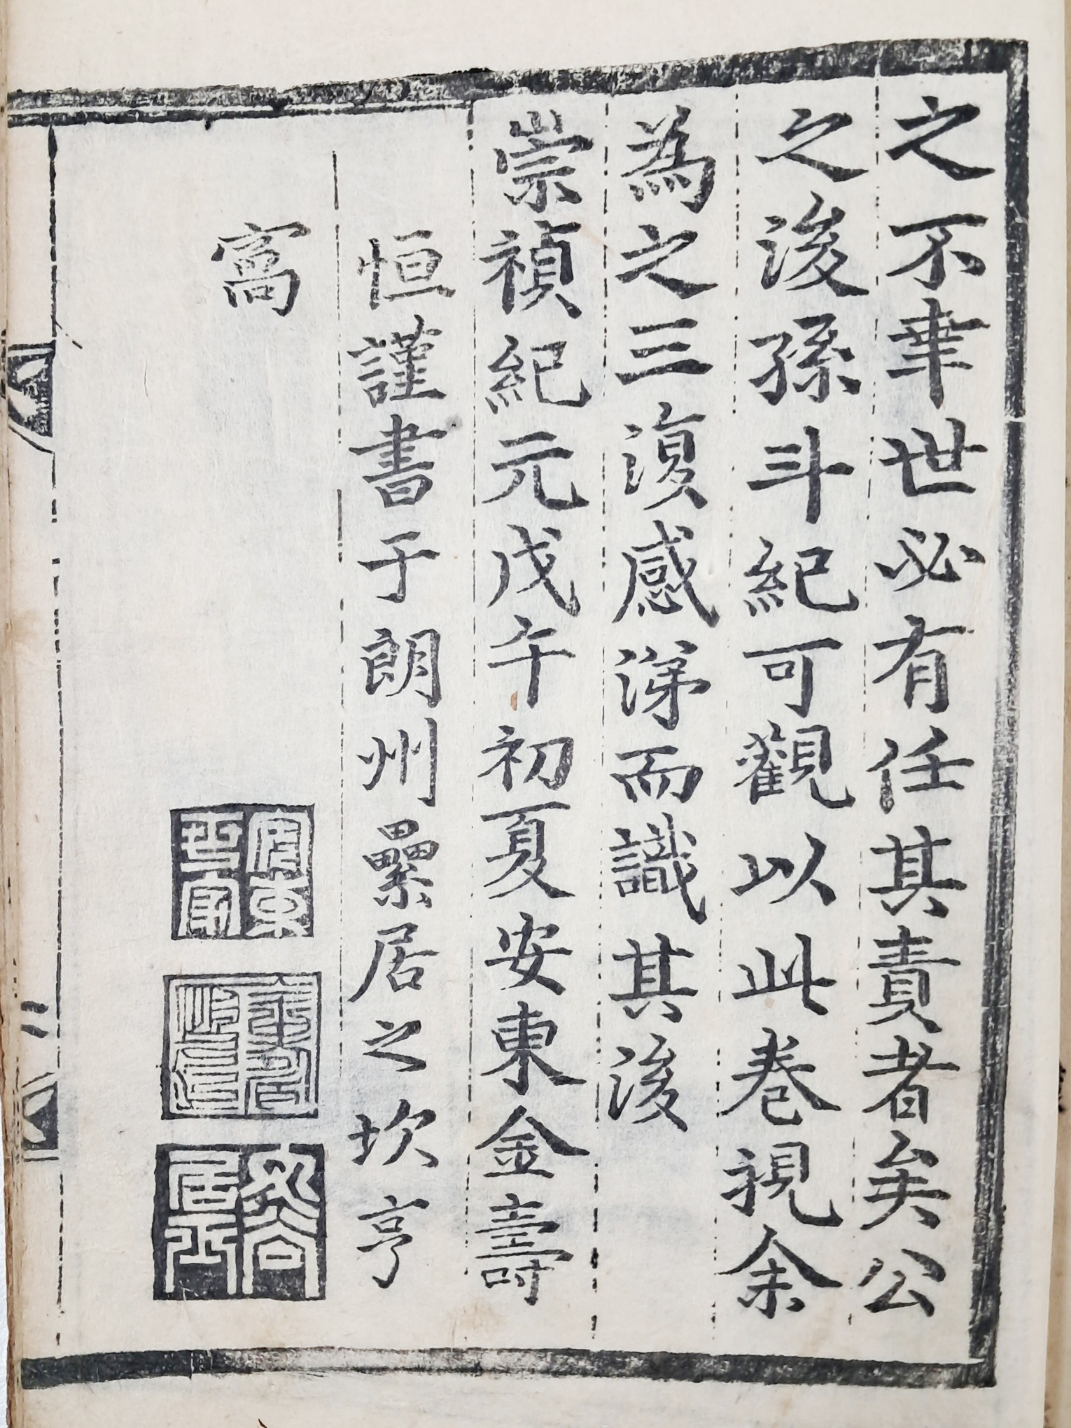 之不幸世必有任其責者矣公
之後孫斗紀可觀以此卷視余
為之三復感涕而識其後
崇禎紀元戊午初夏安東金壽
恒謹書于朗州纍居之坎亨
窩